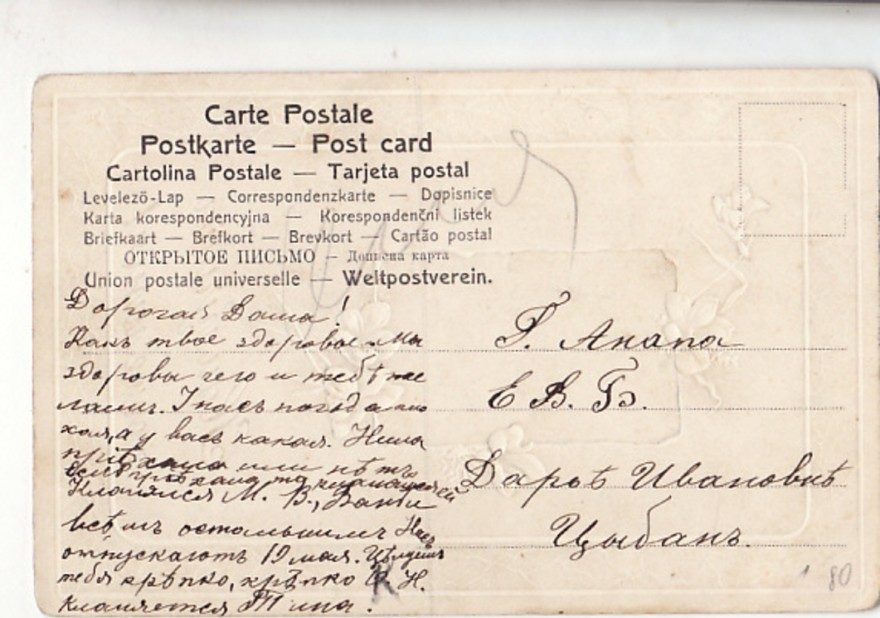 Carte Postale
Postkarte — Post card
Cartolina Postale — Tarjeta postal
Levelezö-Lap — Correspondenzkarte — Dopisnice
Karta korespondencyjna — Korespondenční listek
Briefkaart — Brefkort — Brevkort — Cartão postal
ОТКРЫТОЕ ПИСЬМО — Дописна карта
Union postale universelle — Weltpostverein.
Дорогая Даша!
Какъ твое здоровье мы
здоровы чего и тебѣ же
лаимъ. У насъ погода пло
хая, а у васъ какая. Нина
приѣхала или нѣтъ
если приѣхала то
Кланяйся М. В., Вани
всѣмъ остальнымъ Насъ
отпускаютъ 19 мая. Цѣлуемъ
тебя крѣпко, крѣпко К. Н.
кланяется Тина.
Г. Анапа
Е. В. Б.
Дарьѣ Ивановнѣ
Цыбанъ.
80